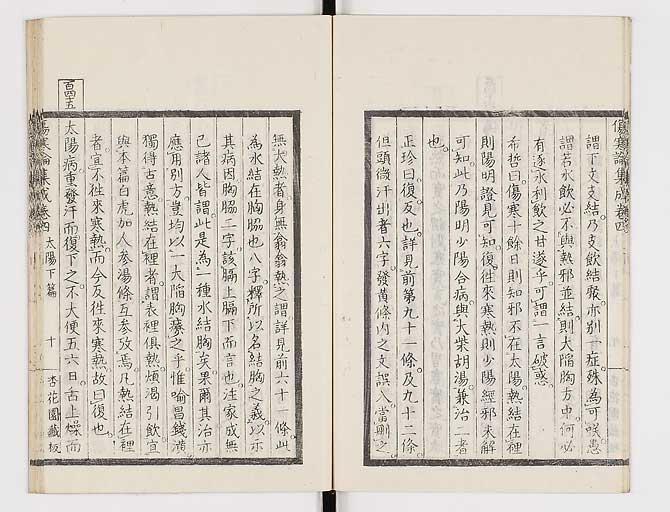 傷寒論集成卷四
謂下文支結乃支飲結聚亦別一症殊為可咲愚
謂若水飲必不與熱邪並結則大陷胸方中何必
有逐水利飲之甘遂乎可謂一言破惑
希哲曰傷寒十餘日則知邪不在太陽熱結在裡
則陽明證見可知復徃來寒熱則少陽經邪未解
可知此乃陽明少陽合病與大柴胡湯兼治二者
也
正珍曰復反也詳見前第九十一條及九十二條
但頭微汗出者六字發黄條內之文誤入當刪之
無大熱者身無翕翕熱之謂詳見前六十一條此
為水結在胸脇也八字釋所以名結胸之義以示
其病因胸脇二字該膈上膈下而言也注家成無
已諸人皆謂此是為一種水結胸矣果爾其治亦
應用別方豈均以一大陷胸藥之乎惟喻昌錢潢
獨得古意熱結在裡者謂表裡俱熱煩渴引飲宜
與本篇白虎加人參湯條互參攷焉凡熱結在裡
者宜不徃來寒熱而今反徃來寒熱故曰復也
百四五
太陽病重發汗而復下之不大便五六日舌上燥而
傷寒論集成卷四 太陽下篇 十 杏花園藏板